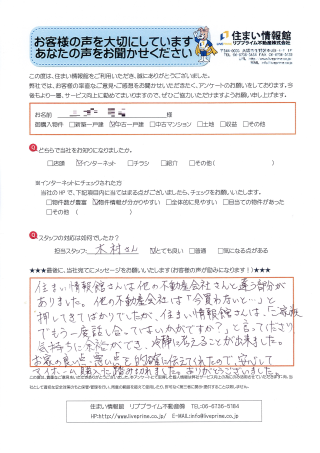 お客様の声を大切にしています
あなたの声をお聞かせください
住まい情報館
リブプライム不動産株式会社
この度は、住まい情報館をご利用いただき、誠にありがとうございました。
弊社では、お客様の率直なご意見・ご感想をお聞かせいただきたく、アンケートのお願いをしております。今
後もより一層、サービス向上に勤めてまいりますので、ぜひご協力いただけますようお願い申し上げます。
お名前 様
御購入物件 □新築一戸建 ☑中古一戸建 □中古マンション □土地 □収益 □その他
Q どちらで当社をお知りになりましたか。
□店頭 ☑インターネット □チラシ □紹介 □その他( )
※インターネットにチェックされた方
当社のHPで、下記項目内に当てはまる点がございましたら、チェックをお願いします。
□物件数が豊富 ☑物件情報が分かりやすい □立体的に見やすい □目当ての物件があった
□その他 ( )
Q スタッフの対応は如何でしたか?
担当スタッフ: 木村さん ☑とても良い □普通 □気になる点がある
★★★最後に、当社宛てにメッセージをお願いいたします(お客様の声が励みになります!)★★★
住まい情報館さんは他の不動産会社さんと違う部分が
ありました。他の不動産会社は「今買わないと…」と
押してきてばかりでしたが、住まい情報館さんは、「ご家族
でもう一度話し合ってはいかがですか?」と言ってくださり
気持ちに余裕ができ、冷静に考えることが出来ました。
お家の良い点、悪い点を的確に伝えてくれたので、安心して
マイホーム購入に踏み切れました。ありがとうございました。
住まい情報館 リブプライム不動産㈱ TEL:06-6736-5184
HP:http://www.liveprime.co.jp/ E-MAIL:info@liveprime.co.jp